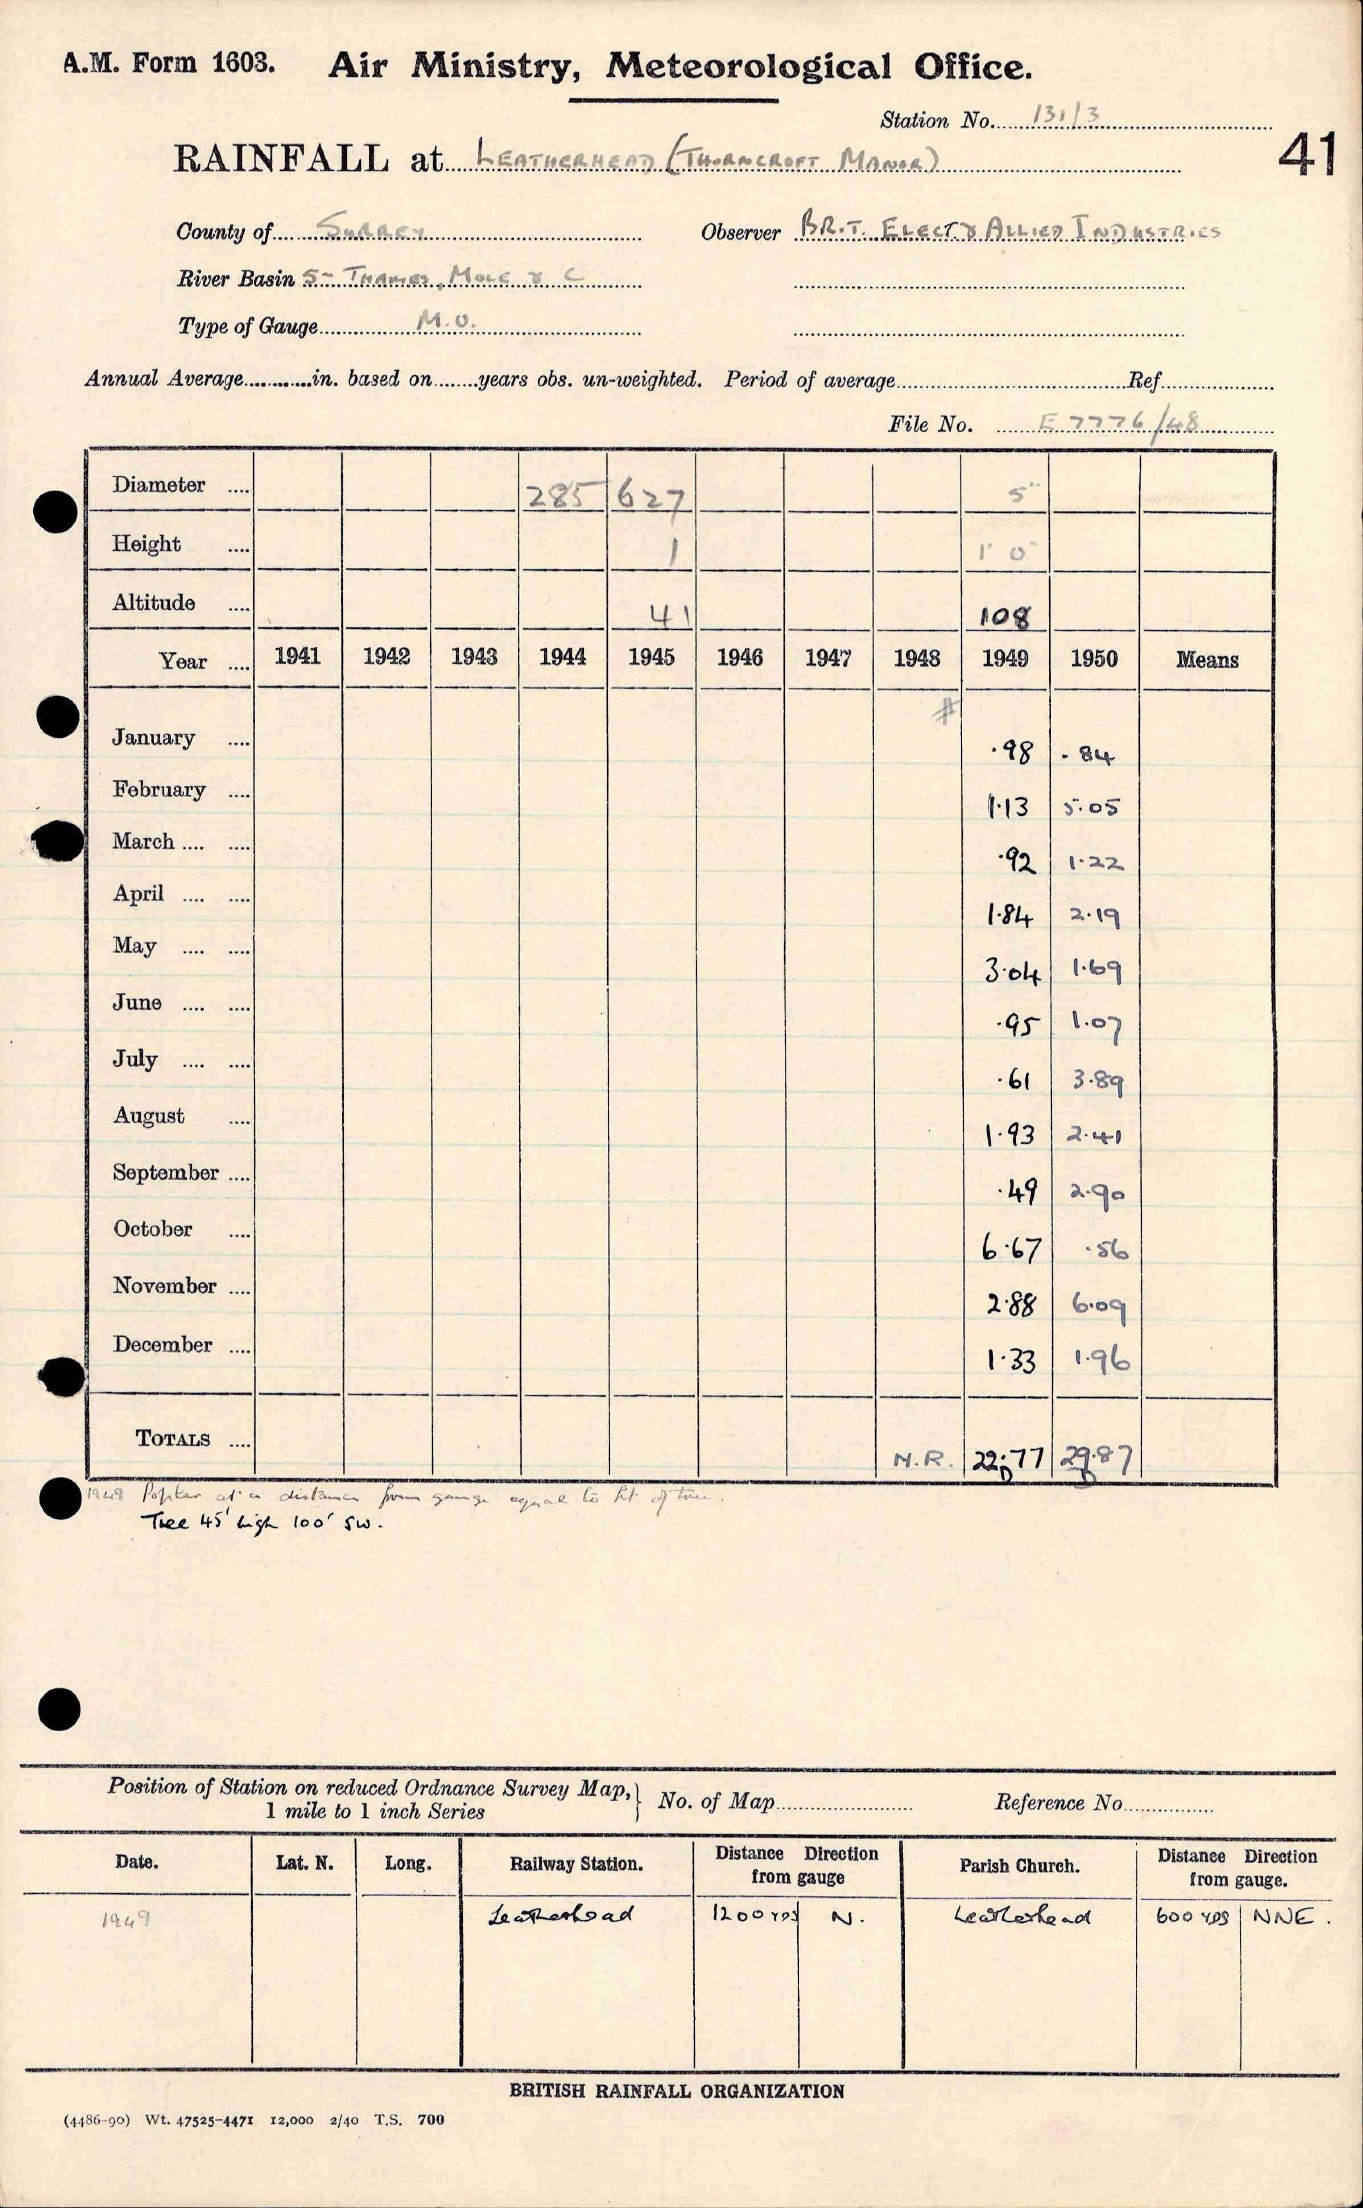 A.M. Form 1603. Air Ministry, Meteorological Office.
Station No. 131/3
RAINFALL at LEATHERHEAD (THORNCROFT MANOR)
41
County of SURREY Observer BRIT. ELECT & ALLIED INDUSTRIES
River Basin 5- THAMES, MOLE & C
Type of Gauge M.O.
Annual Average............in. based on........years obs. un-weighted. Period of average Ref.
File No. E 7776/48
Diameter .... 285 627 5"
Height .... 1 1' 0"
Altitude .... 41 108
Year .... 1941 1942 1943 1944 1945 1946 1947 1948 1949 1950 Means
#
January .... ·98 ·84
February .... 1·13 5·05
March .... .... ·92 1·22
April .... .... 1·84 2·19
May .... .... 3·04 1·69
June .... .... ·95 1·07
July .... .... ·61 3·89
August .... 1·93 2·41
September .... ·49 2·90
October .... 6·67 ·56
November .... 2·88 6·09
December .... 1·33 1·96
TOTALS .... N.R. 22·77 29·87
D D
1949 Poplar at a distance from gauge equal to ht of tree.
Tree 45' high 100' SW.
Position of Station on reduced Ordnance Survey Map, } No. of Map Reference No.
1 mile to 1 inch Series
Date. Lat. N. Long. Railway Station. Distance Direction from gauge Parish Church. Distance Direction from gauge.
1949 Leatherhead 1200 YDS N. Leatherhead 600 YDS NNE.
BRITISH RAINFALL ORGANIZATION
(4486-90) Wt. 47525-4471 12,000 2/40 T.S. 700